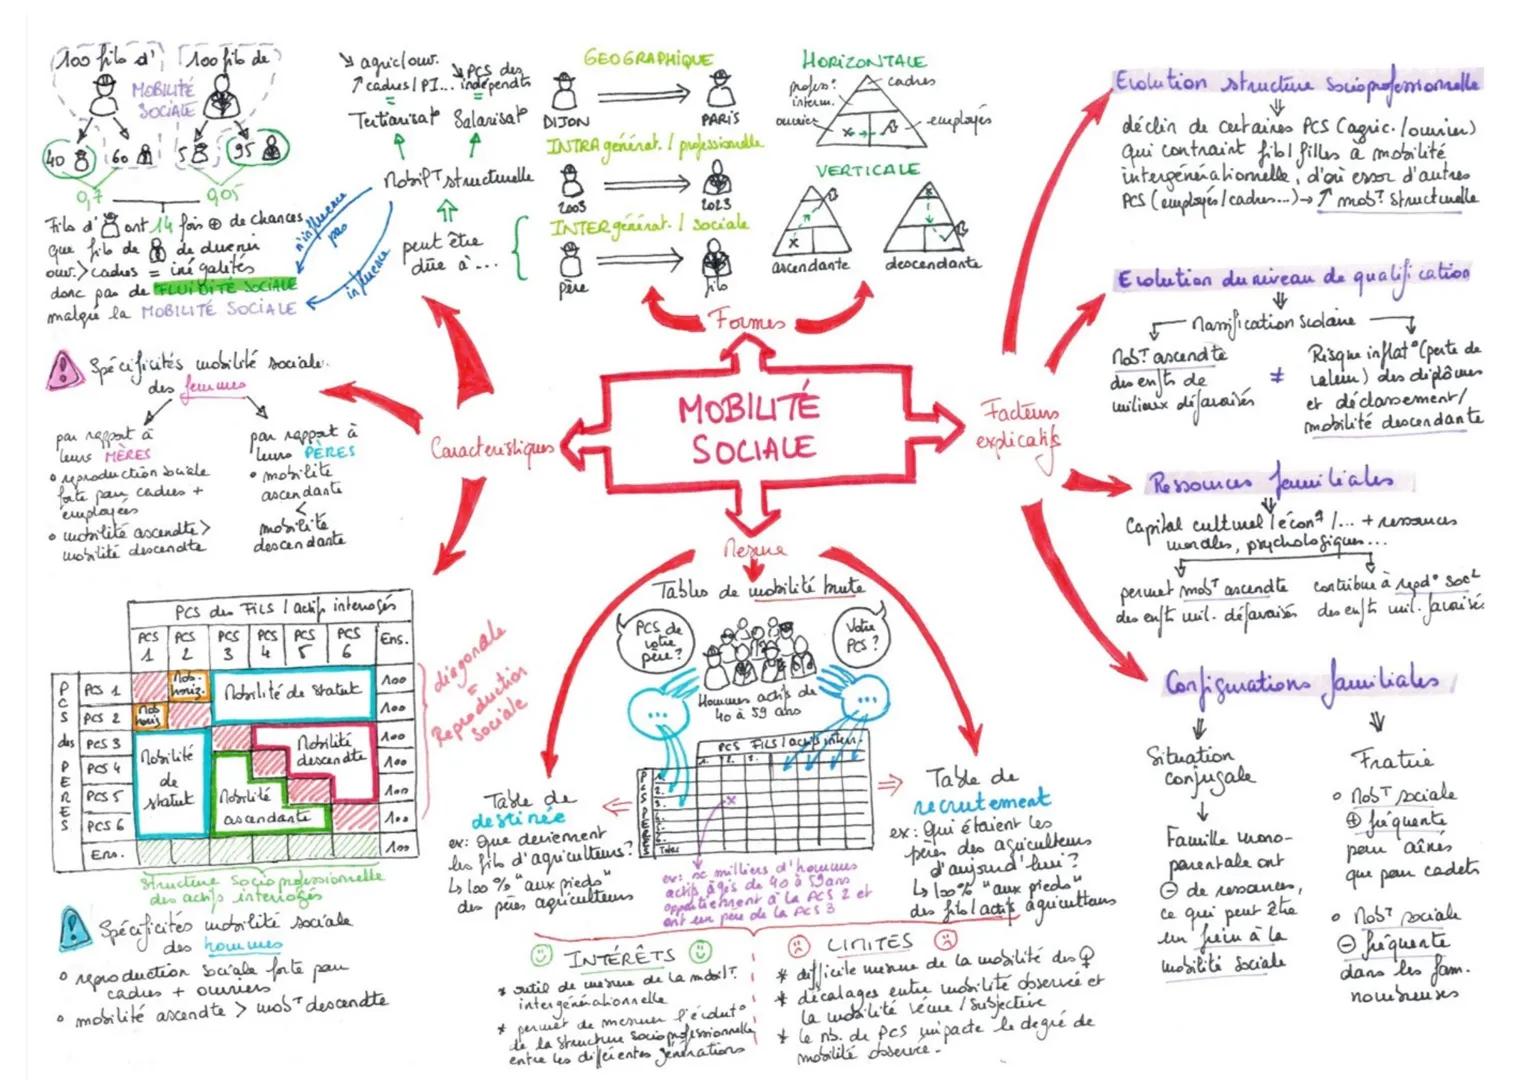 MOBILITÉ
SOCIALE
100 fils d'
100 fils de
MOBILITÉ
SOCIALE
40
60
5
95
0,7
0,05
Fils d' ont 14 fois ⊕ de chances
que fils de de devenir
ouv. > cadres = inégalités
donc pas de FLUIDITÉ SOCIALE
malgré la MOBILITÉ SOCIALE
↘ agric/ouv.
↗ cadres/PI...
=
Tertiarisat°
↘ PCS des
indépendts
=
Salarisat°
Mobilᵀ structurelle
n'influence
pas
influence
peut être
dûe à...
GEOGRAPHIQUE
DIJON
PARIS
INTRAgénérat. / professionnelle
2003
2023
INTERgénérat. / sociale
père
fils
HORIZONTALE
profess°
interm.
ouvriers
cadres
employés
VERTICALE
ascendante
descendante
Formes
Caractéristiques
Spécificités mobilité sociale
des femmes
par rapport à
leurs MÈRES
• reproduction sociale
forte pour cadres +
employées
• mobilité ascendte >
mobilité descendte
par rapport à
leurs PÈRES
• mobilité
ascendante
<
mobilité
descendante
PCS des FILS / actifs interrogés
PCS 1
PCS 2
PCS 3
PCS 4
PCS 5
PCS 6
Ens.
PCS des PERES
PCS 1
Mob. horiz.
Mobilité de statut
100
PCS 2
Mob. horiz.
100
PCS 3
Mobilité
de
statut
Mobilité
descendte
100
PCS 4
100
PCS 5
Mobilité
ascendante
100
PCS 6
100
Ens.
100
diagonale
=
Reproduction
sociale
Structure Socioprofessionnelle
des actifs interrogés
Spécificités mobilité sociale
des hommes
• reproduction sociale forte pour
cadres + ouvriers
• mobilité ascendte > mobᵀ descendte
Mesure
Tables de mobilité brute
PCS de
votre
père?
Votre
PCS?
Hommes actifs de
40 à 59 ans
...
...
PCS FILS / actifs interr.
1. 2. 3.
1.
2.
3.
X
Table de
destinée
ex: Que deviennent
les fils d'agriculteurs?
↳ 100% "aux pieds"
des pères agriculteurs
ex: x milliers d'hommes
actifs âgés de 40 à 59 ans
appartiennent à la PCS 2 et
ont un père de la PCS 3
Table de
recrutement
ex: Qui étaient les
pères des agriculteurs
d'aujourd'hui?
↳ 100% "aux pieds"
des fils/actifs agriculteurs
INTÉRÊTS
* outil de mesure de la mobilᵀ.
intergénérationnelle
* permet de mesurer l'évolut°
de la structure socioprofessionnelle
entre les différentes générations
LIMITES
* difficile mesure de la mobilité des ♀
* décalages entre mobilité observée et
la mobilité vécue / subjective
* le nb. de PCS impacte le degré de
mobilité observée.
Facteurs
explicatifs
Evolution structure socioprofessionnelle
déclin de certaines PCS (agric./ouvrier)
qui contraint fils/filles à mobilité
intergénérationnelle, d'où essor d'autres
PCS (employés/cadres...) → ↗ mobᵀ structurelle
Evolution du niveau de qualification
Massification scolaire
Mobᵀ ascendte
des enfts de
milieux défavorisés
≠
Risque inflat° (perte de
valeur) des diplômes
et déclassement/
mobilité descendante
Ressources familiales
Capital culturel / écon² /... + ressources
morales, psychologiques...
permet mobᵀ ascendte
des enfts mil. défavorisés
contribue à repd° socˡᵉ
des enfts mil. favorisés
Configurations familiales
Situation
conjugale
Famille mono-
parentale ont
⊖ de ressources,
ce qui peut être
un frein à la
mobilité sociale
Fratrie
• Mobᵀ sociale
⊕ fréquente
pour aînés
que pour cadets
• Mobᵀ sociale
⊖ fréquente
dans les fam.
nombreuses